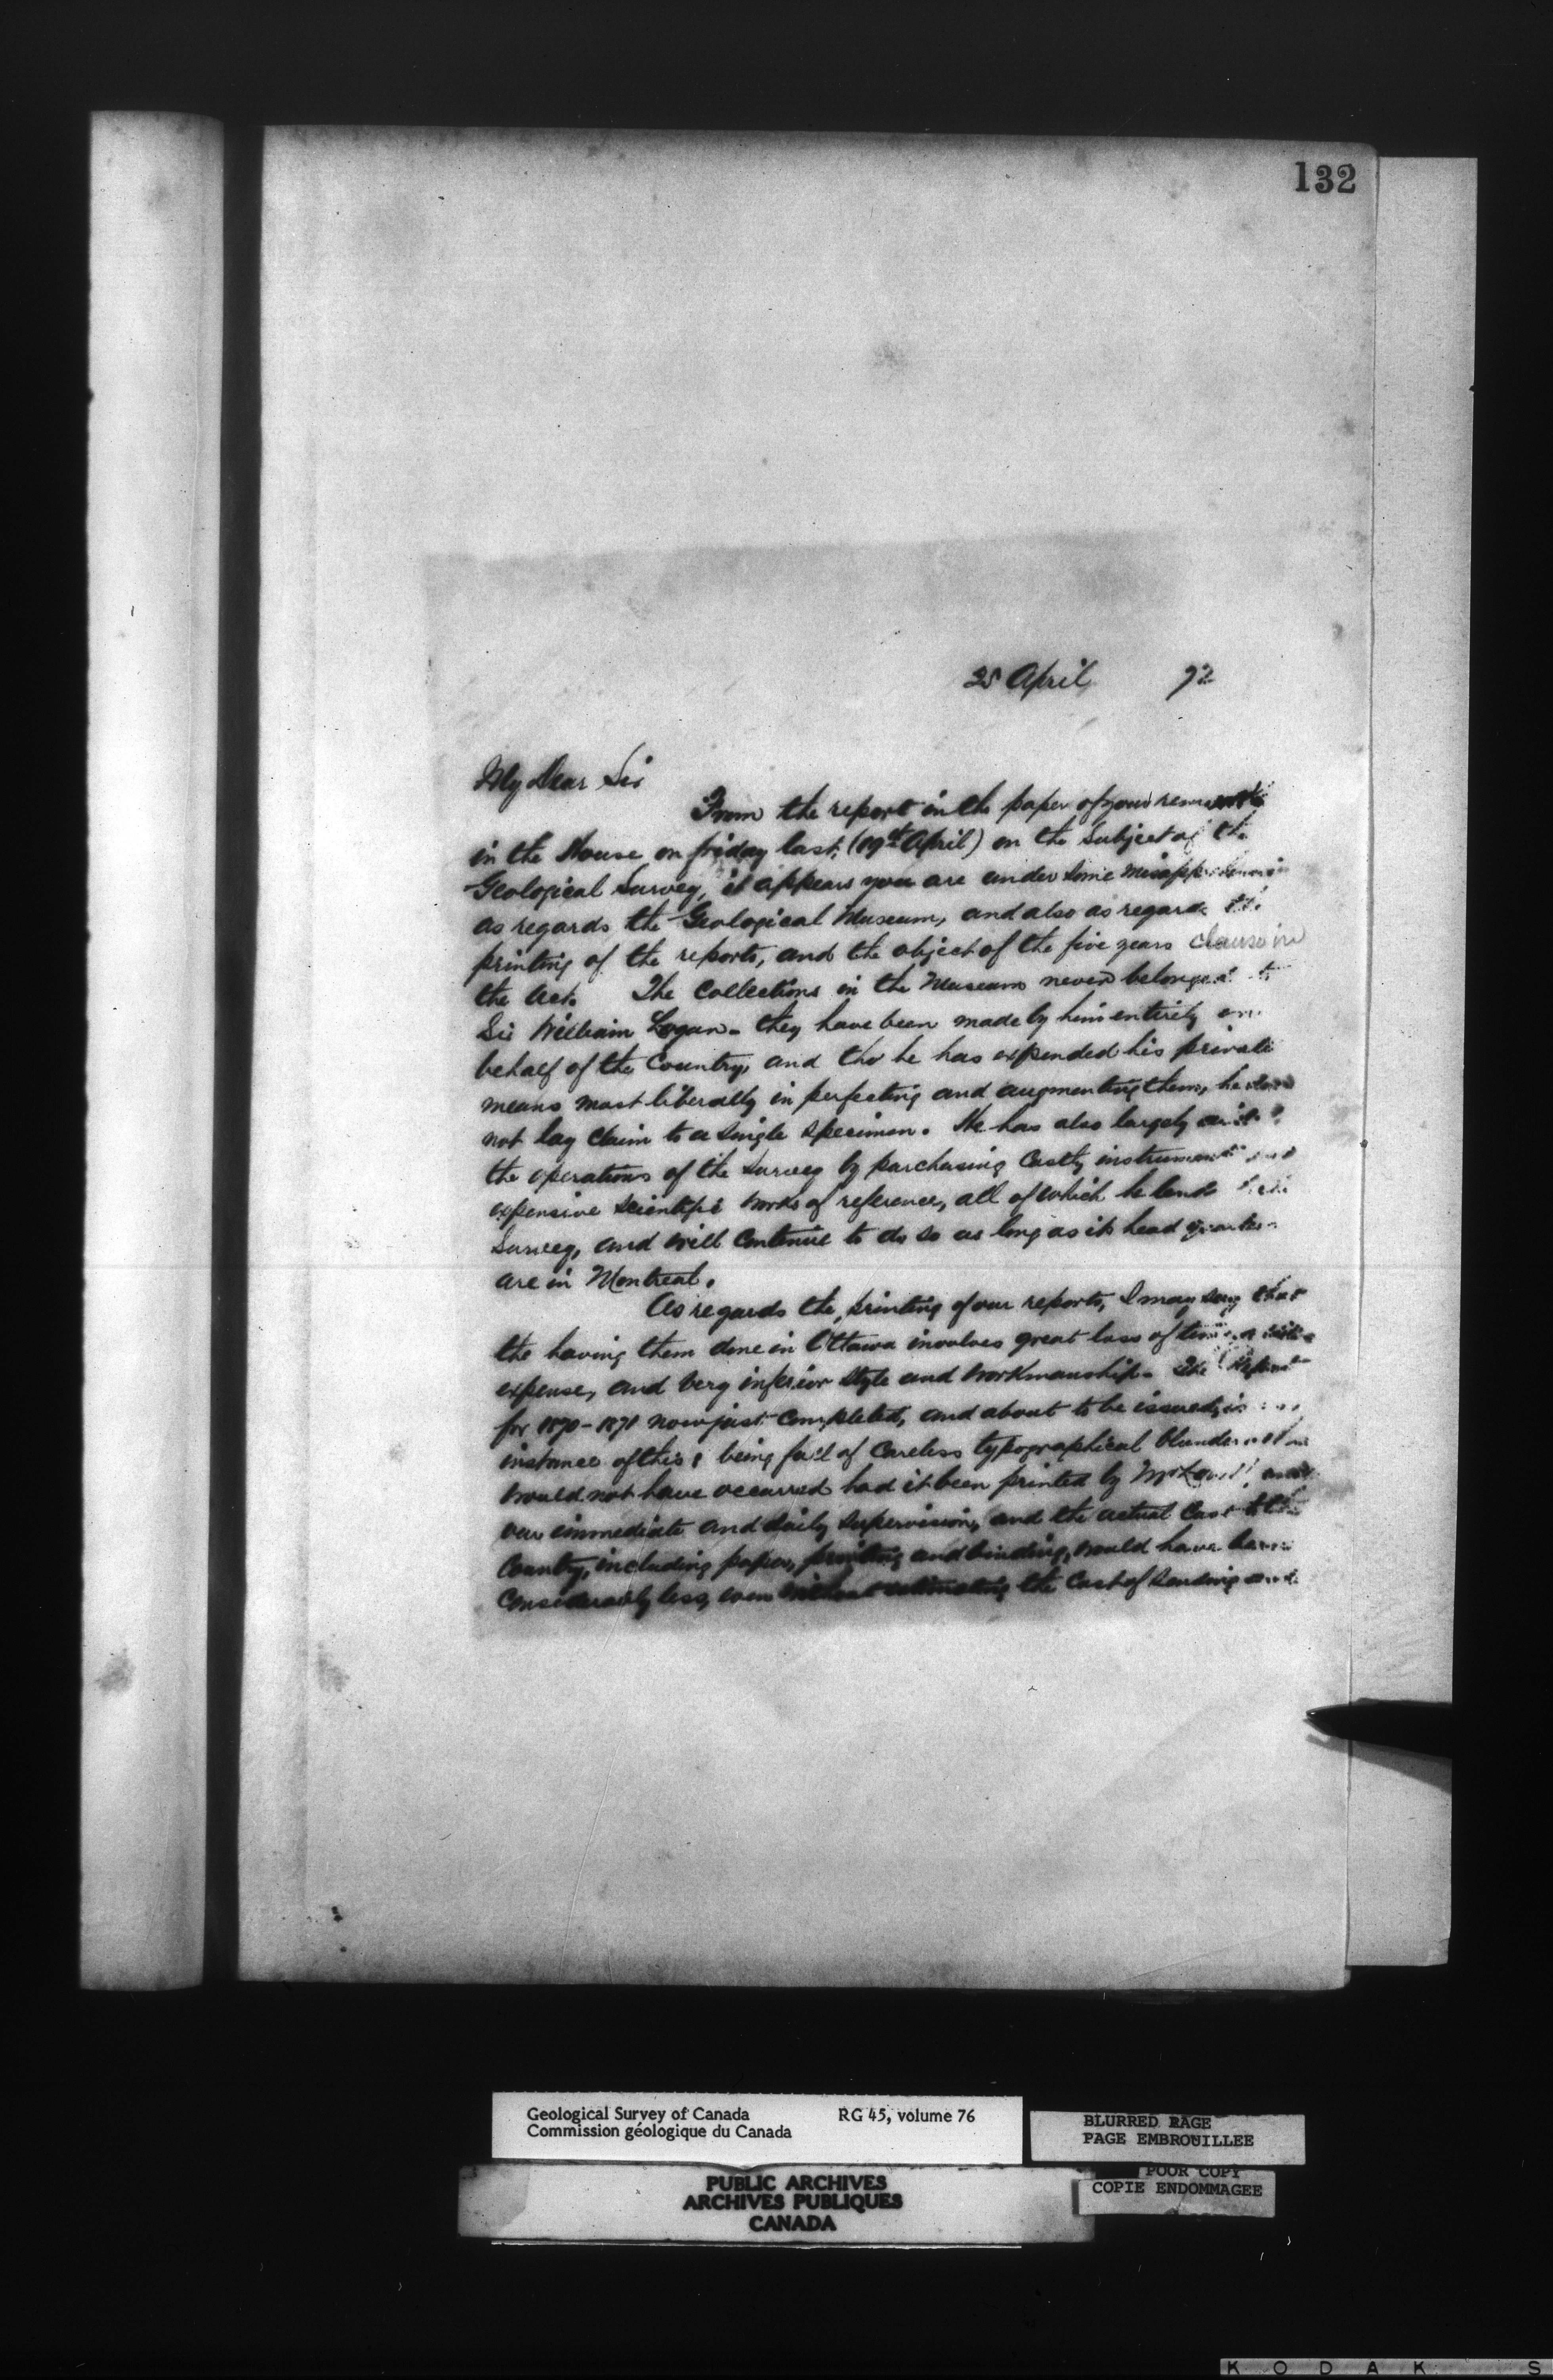 132
25 April 72
My Dear Sir
From the report in the paper of your remarks
in the House on friday last, (19th April) on the Subject of the
Geological Survey, it appears you are under some misapprehension
as regards the Geological Museum, and also as regards the
printing of the reports, and the object of the five years clause in
the Act. The Collections in the Museum never belonged to
Sir William Logan - they have been made by him entirely on
behalf of the Country, and tho he has expended his private
means most liberally in perfecting and augmenting them, he does
not lay claim to a single specimen. He has also largely
the operations of the Survey by purchasing Costly instruments and
expensive scientific works of reference, all of which he lends
Survey, and will Continue to do so as long as its head quarters
are in Montreal.
As regards the printing of our reports, I may say that
the having them done in Ottawa involves great loss of time,
expense, and very inferior style and workmanship. The Report
for 1870-1871 now just Completed, and about to be issued, is
instance of this, being full of Careless typographical blunders
would not have occurred had it been printed by
our immediate and daily supervision, and the actual Cost to the
Country, including paper, printing and binding, would have been
Considerably less, even without estimating the Cost of sending and
Geological Survey of Canada RG 45, volume 76
Commission géologique du Canada
BLURRED PAGE
PAGE EMBROUILLEE
PUBLIC ARCHIVES
ARCHIVES PUBLIQUES
CANADA
POOR COPY
COPIE ENDOMMAGEE
K O D A K S